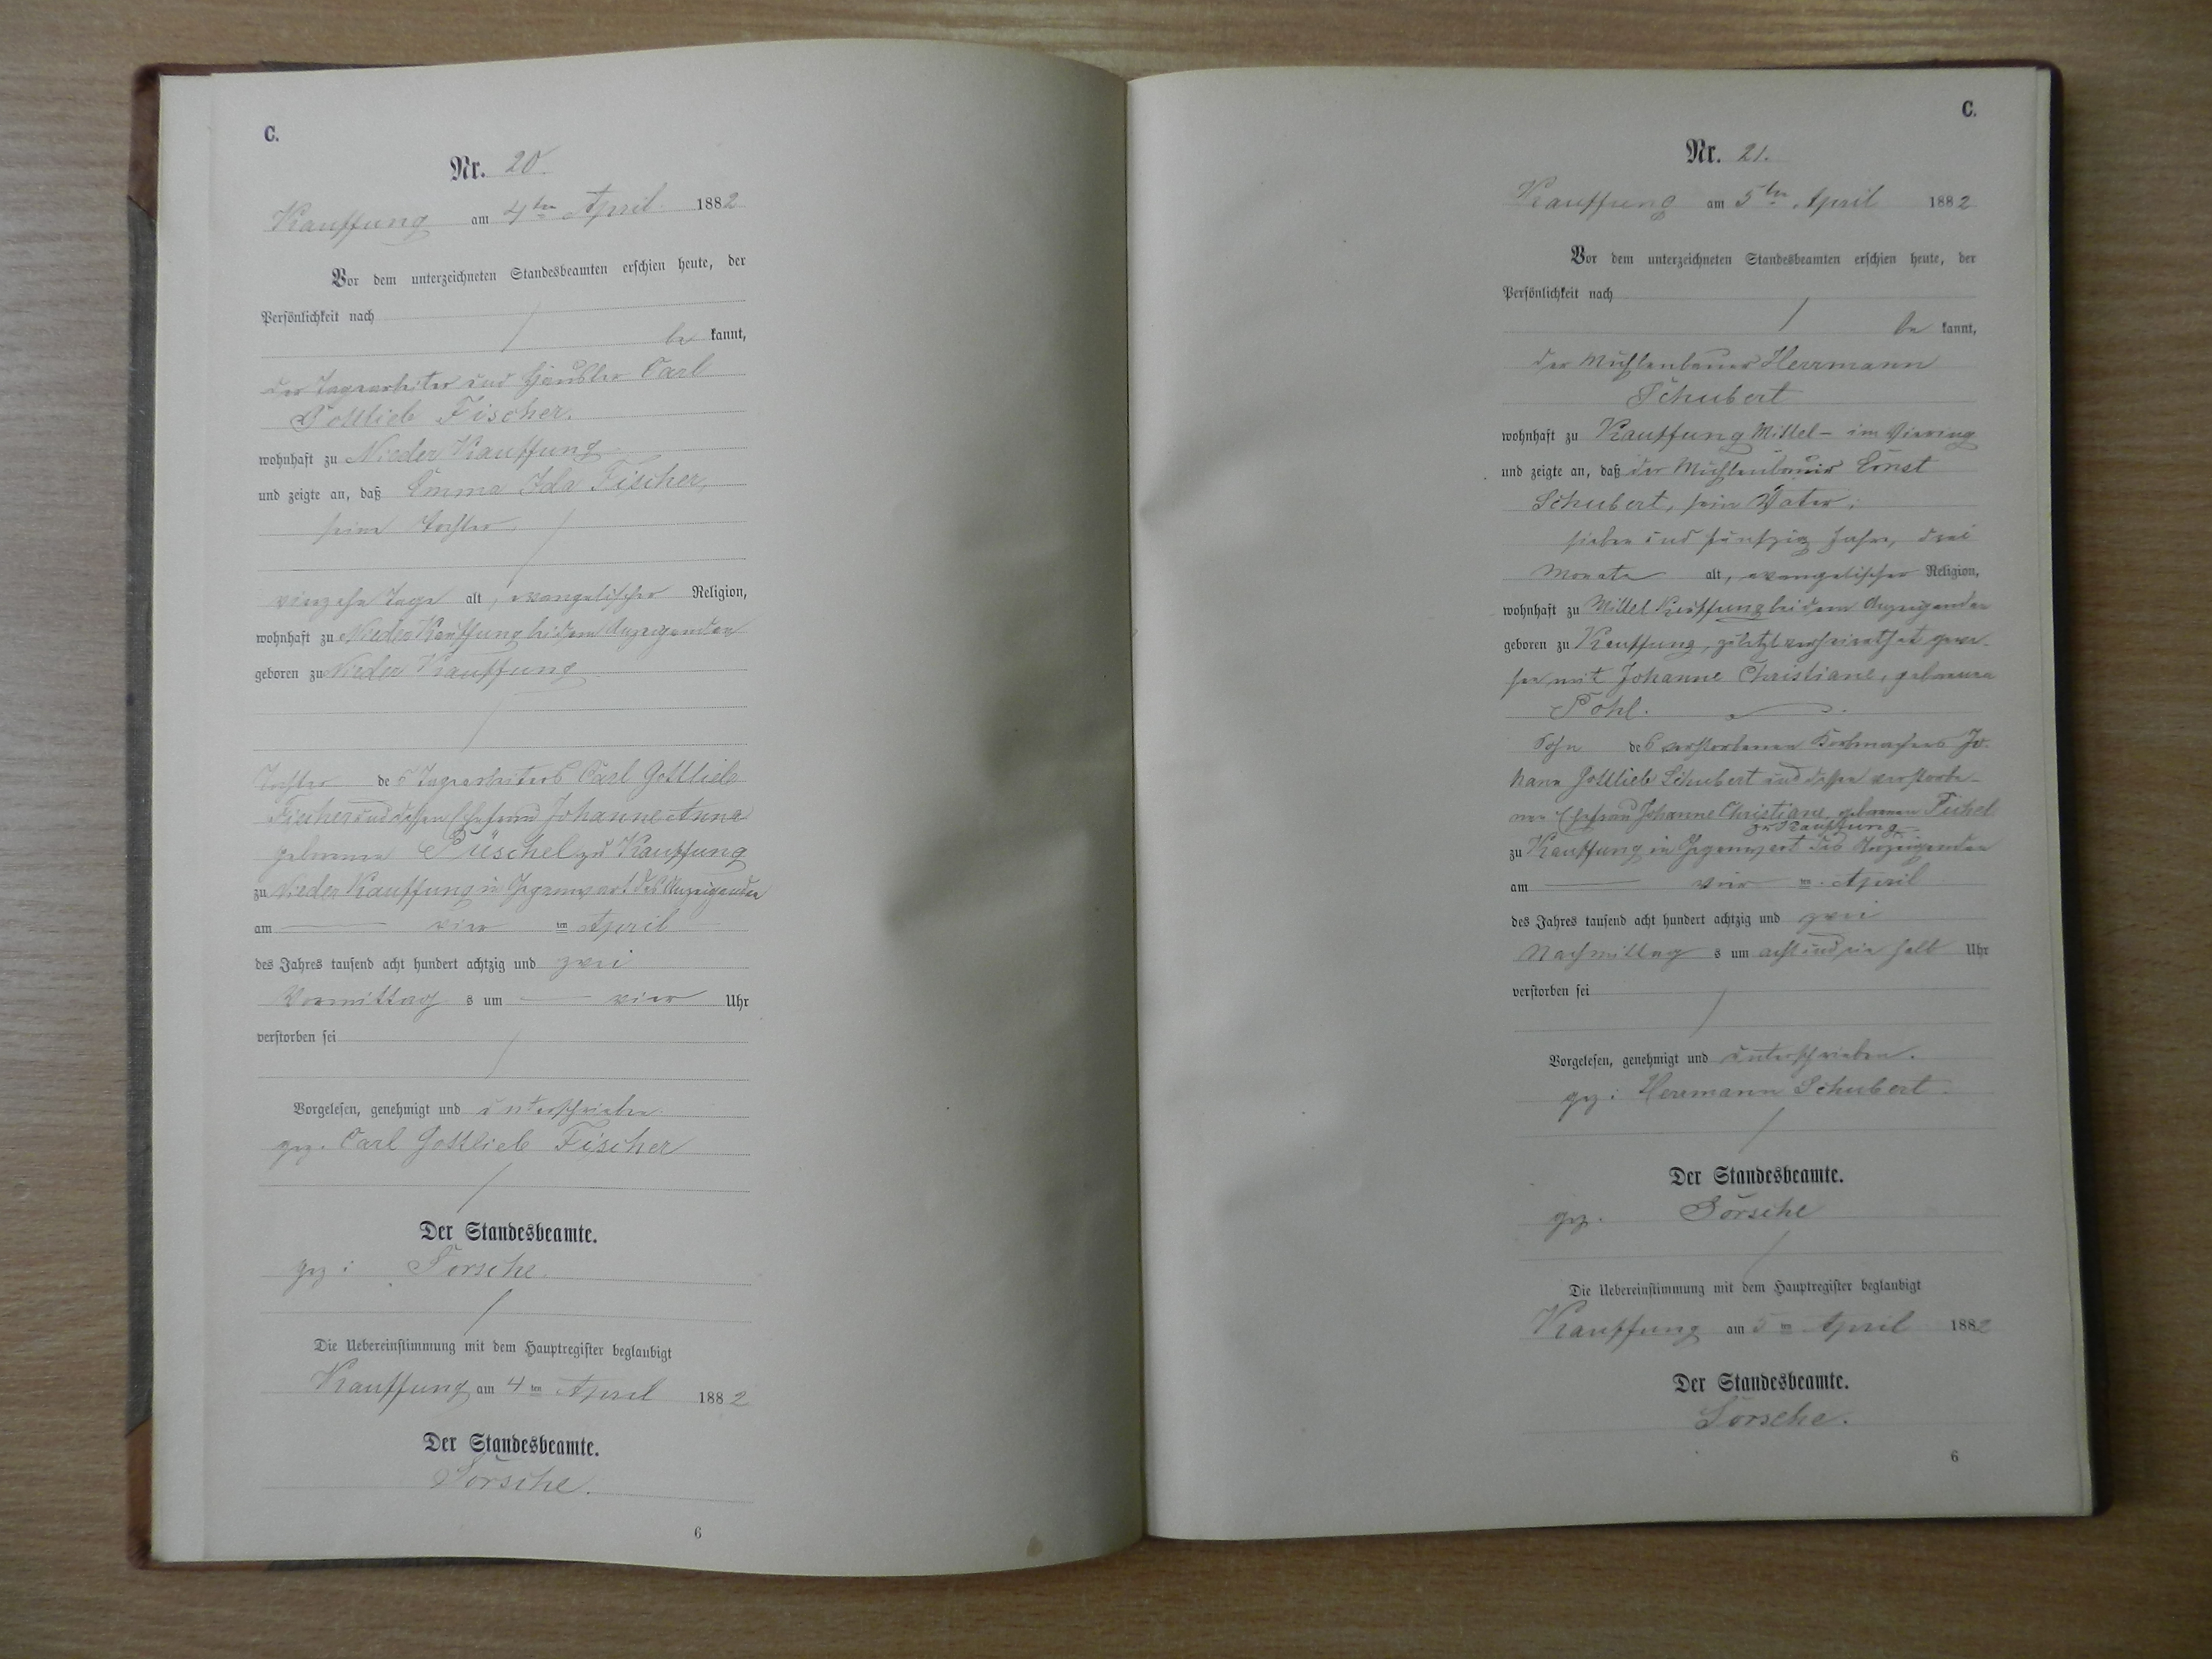 C.
Nr. 20.
Kauffung am 4ten April 1882
Vor dem unterzeichneten Standesbeamten erschien heute, der
Persönlichkeit nach
be kannt,
der Tagearbeiter und Häusler Carl
Gottlieb Fischer.
wohnhaft zu Nieder Kauffung
und zeigte an, daß Emma Ida Fischer,
seine Tochter,
vierzehn Tage alt, evangelischer Religion,
wohnhaft zu Nieder Kauffung bei dem Anzeigenden
geboren zu Nieder Kauffung
Tochter des Tagearbeiters Carl Gottlieb
Fischer und dessen Ehefrau Johanne Anna
geborenen Püschel zu Kauffung
zu Nieder Kauffung in Gegenwart des Anzeigenden
am vier ten April
des Jahres tausend acht hundert achtzig und zwei
Vormittag s um vier Uhr
verstorben sei
Vorgelesen, genehmigt und unterschrieben
gez. Carl Gottlieb Fischer
Der Standesbeamte.
gez:
Die Uebereinstimmung mit dem Hauptregister beglaubigt
Kauffung am 4 ten April 1882
Der Standesbeamte.
6
C.
Nr. 21.
Kauffung am 5ten April 1882
Vor dem unterzeichneten Standesbeamten erschien heute, der
Persönlichkeit nach
be kannt,
der Mühlenbauer Herrmann
Schubert
wohnhaft zu Kauffung Mittel- im Viering
und zeigte an, daß der Mühlenbauer Ernst
Schubert, sein Vater,
sieben und fünfzig Jahre, drei
Monate alt, evangelischer Religion,
wohnhaft zu Mittel Kauffung bei dem Anzeigenden
geboren zu Kauffung, zuletzt verheirathet gewe-
sen mit Johanne Christiane, geborenen
Pohl.
Sohn des verstorbenen Korbmachers Jo-
hann Gottlieb Schubert und dessen verstorbe-
nen Ehefrau Johanne Christiane, geborenen
zu Kauffung
zu Kauffung in Gegenwart des Anzeigenden
am vier ten April
des Jahres tausend acht hundert achtzig und zwei
Nachmittag s um acht und ein halb Uhr
verstorben sei
Vorgelesen, genehmigt und unterschrieben.
gez: Herrmann Schubert.
Der Standesbeamte.
gez.
Die Uebereinstimmung mit dem Hauptregister beglaubigt
Kauffung am 5 ten April 1882
Der Standesbeamte.
6